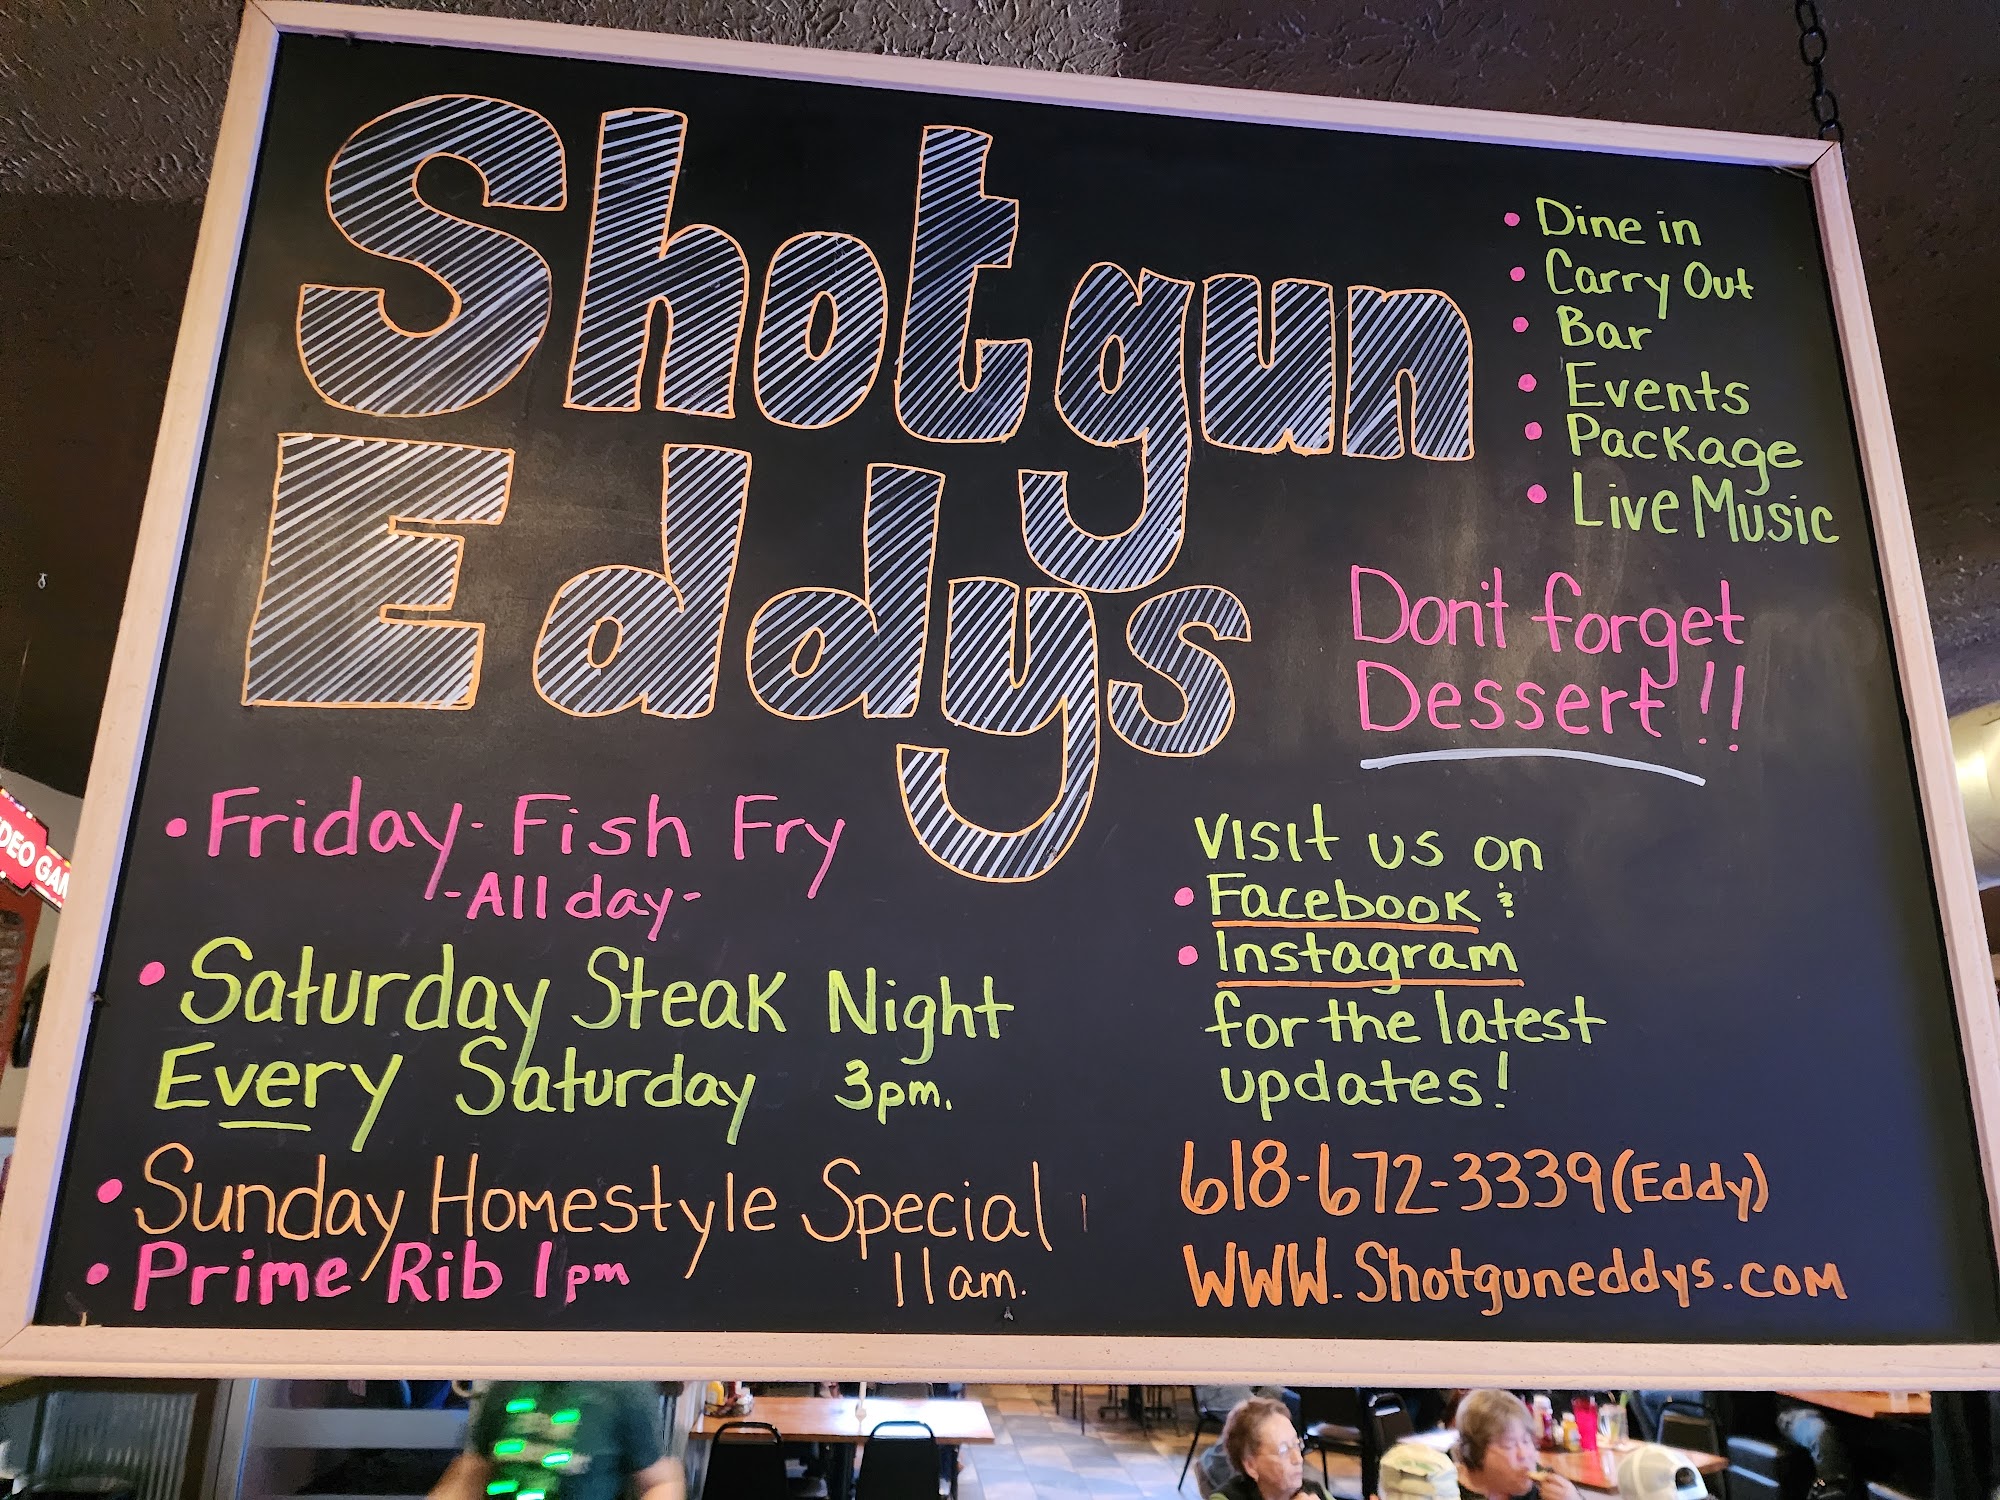 Shotgun
Eddys
• Dine in
• Carry Out
• Bar
• Events
• Package
• Live Music
Don't forget
Dessert!!
• Friday - Fish Fry
- All day -
• Saturday Steak Night
Every Saturday 3pm.
• Sunday Homestyle Special
11am.
• Prime Rib 1pm
Visit us on
• Facebook &
• Instagram
for the latest
updates!
618-672-3339 (Eddy)
WWW.Shotguneddys.com
DEO GAM